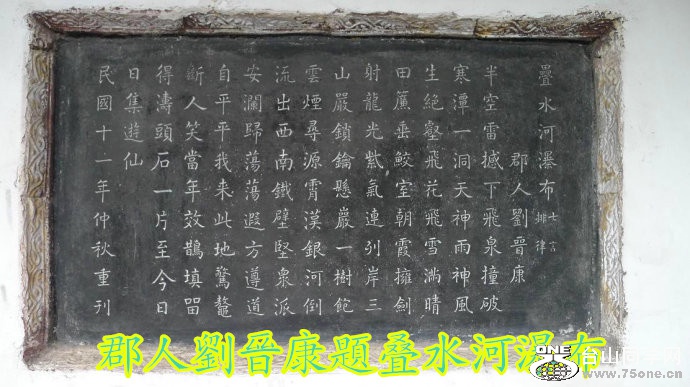 疊水河瀑布 七言排律
郡人劉晉康
半空雷撼下飛泉撞破
寒潭一洞天神雨神風
生絕壑飛花飛雪滿晴
田簾垂鮫室朝霞擁劍
射龍光紫氣連列岸三
山嚴鎖鑰懸巖一樹飽
雲煙尋源霄漢銀河倒
流出西南鐵壁堅衆派
安瀾歸蕩蕩遐方遵道
自平平我来此地驚鼇
斷人笑當年效鵲填留
得濤頭石一片至今日
日集遊仙
民國十一年仲秋重刊
郡人劉晉康題叠水河瀑布
ONE
台山
www.75one.cn